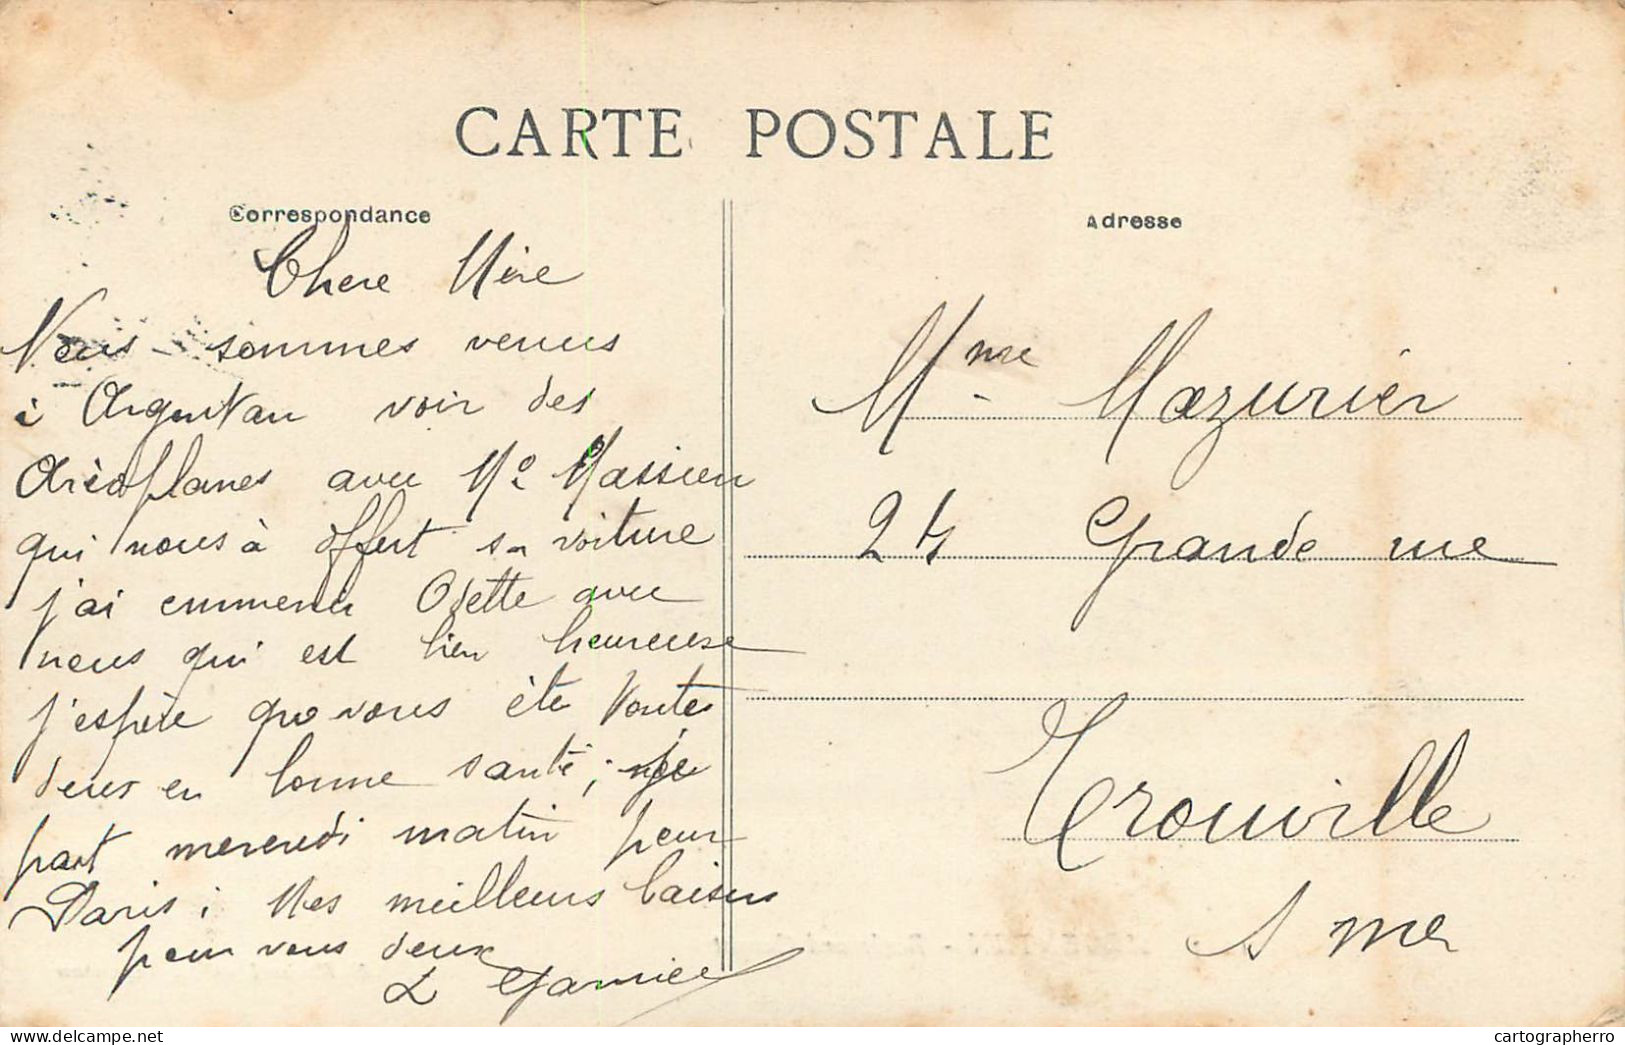 CARTE POSTALE
Correspondance
Chere Mère
Nous sommes venus
à Argentan voir des
Arèoplanes avec Mr Massieu
qui nous à offert sa voiture
j'ai emmener Odette avec
nous qui est bien heureuse
j'espère que vous ête toutes
deux en bonne santé; je
part mercredi matin pour
Paris; Mes meilleurs baisers
pour vous deux
L Garnier
Adresse
Mme Mazurier
24 Grande rue
Trouville
s mer
cartographerro